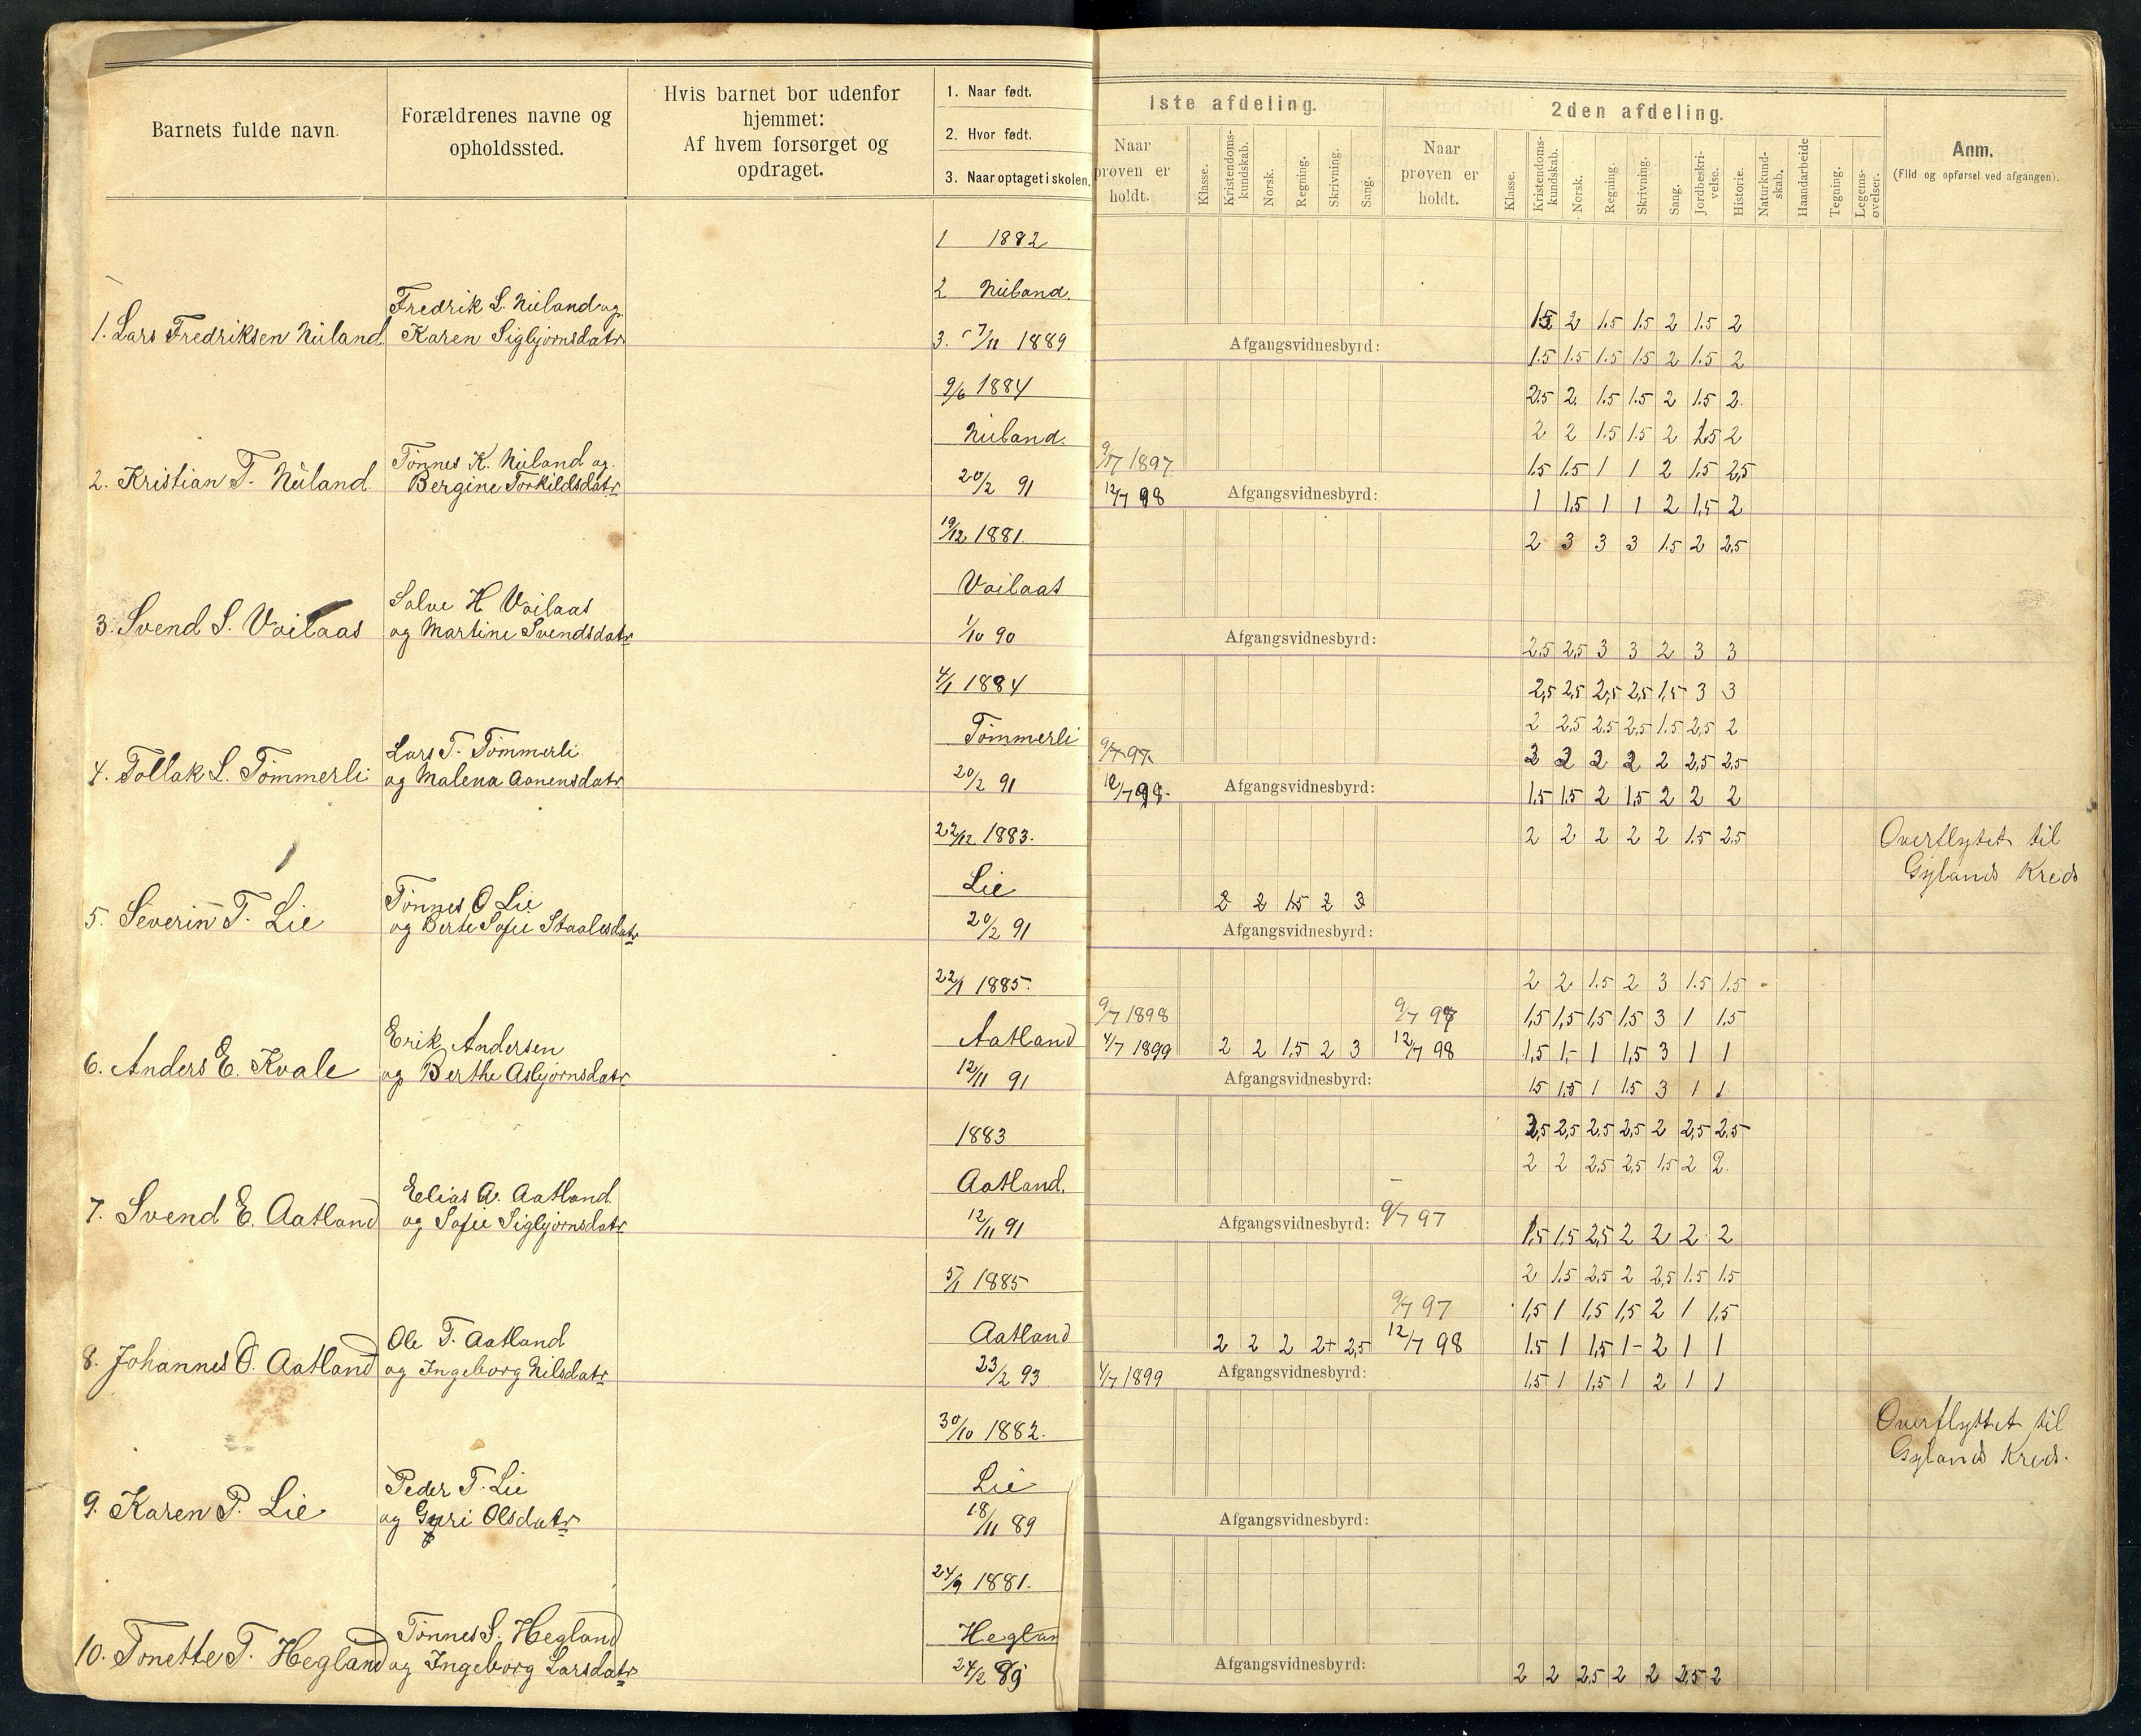 Barnets fulde navn.
Forældrenes navne og
opholdssted.
Hvis barnet bor udenfor
hjemmet:
Af hvem forsørget og
opdraget.
1. Naar født.
2. Hvor født.
3. Naar optaget i skolen.
1ste afdeling.
Naar
prøven er
holdt.
Klasse.
Kristendoms-
kundskab.
Norsk.
Regning.
Skrivning.
Sang.
2den afdeling.
Naar
prøven er
holdt.
Klasse.
Kristendoms-
kundskab.
Norsk.
Regning.
Skrivning.
Sang.
Jordbeskri-
velse.
Historie.
Naturkund-
skab.
Haandarbeide
Tegning.
Legems-
øvelser.
Anm.
(Flid og opførsel ved afgangen).
1. Lars Fredriksen Nuland
Fredrik L. Nuland og
Karen Sigbjørnsdatr
1 1882
2 Nuland.
3. 7/11 1889
1.5 2 1.5 1.5 2 1.5 2
Afgangsvidnesbyrd:
1.5 1.5 1.5 1.5 2 1.5 2
2. Kristian T. Nuland
Tønnes K. Nuland og
Bergine Torkildsdatr
9/6 1884
Nuland.
20/2 91
2.5 2 1.5 1.5 2 1.5 2
2 2 1.5 1.5 2 1.5 2
9/7 1897
1.5 1.5 1 1 2 1.5 2,5
12/7 98
Afgangsvidnesbyrd:
1 1,5 1 1 2 1,5 2
3. Svend S. Voilaas
Salve H Voilaas
og Martine Svendsdatr
19/12 1881.
Voilaas
1/10 90
2 3 3 3 1.5 2 2,5
Afgangsvidnesbyrd:
2,5 2,5 3 3 2 3 3
4. Tollak L. Tömmerli
Lars T. Tömmerli
og Malena Aanensdatr
4/1 1884
Tömmerli
20/2 91
2,5 2,5 2,5 2,5 1,5 3 3
2 2,5 2.5 2,5 1.5 2,5 2
9/7 97.
2 2 2 2 2,5 2,5
12/7 98.
Afgangsvidnesbyrd:
1.5 1.5 2 1,5 2 2 2
5. Severin T. Lie
Tönnes O Lie
og Berte Sofie Staalesdatr
22/12 1883.
Lie
20/2 91
2 2 2 2 2 1.5 2.5
Overflytet til
Gylands Kreds
2 2 1.5 2 3
Afgangsvidnesbyrd:
6. Anders E. Kvale
Erik Andersen
og Berthe Asbjørnsdatr
22/1 1885.
Aatland
12/11 91
2 2 1.5 2 3 1.5 1.5
9/7 1898
9/7 97
1,5 1,5 1,5 1,5 3 1 1.5
4/7 1899
2 2 1,5 2 3
12/7 98
1,5 1,- 1 1,5 3 1 1
Afgangsvidnesbyrd:
1.5 1.5 1 1.5 3 1 1
7. Svend E. Aatland
Elias A. Aatland
og Sofie Sigbjørnsdatr
1883
Aatland.
12/11 91
2,5 2,5 2,5 2,5 2 2,5 2,5
2 2 2,5 2,5 1,5 2 2
Afgangsvidnesbyrd:
9/7 97
1.5 1.5 2,5 2 2 2 2
8. Johannes O. Aatland
Ole T. Aatland
og Ingeborg Nilsdatr
5/1 1885
Aatland
23/2 93
2 1.5 2.5 2 2,5 1.5 1.5
9/7 97
1,5 1 1,5 1,5 2 1 1,5
2 2 2 2+ 2,5
12/7 98
1.5 1 1,5 1- 2 1 1
4/7 1899
Afgangsvidnesbyrd:
1,5 1 1,5 1 2 1 1
9. Karen P. Lie
Peder T. Lie
og Guri Olsdatr
30/10 1882.
Lie
18/11 89
Overflyttet til
Gylands Kreds.
Afgangsvidnesbyrd:
10. Tonette T. Hegland
Tönnes S. Hegland
og Ingeborg Larsdatr
24/9 1881.
Heglan
24/2 89
Afgangsvidnesbyrd:
2 2 2,5 2 2 2,5 2